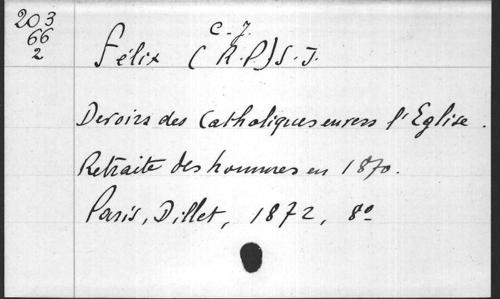 203
66
2
C. J.
Félix (R. P.) S. J.
Devoirs des Catholiques envers l'Eglise.
Retraite des hommes en 1870.
Paris, Dillet, 1872, 8º